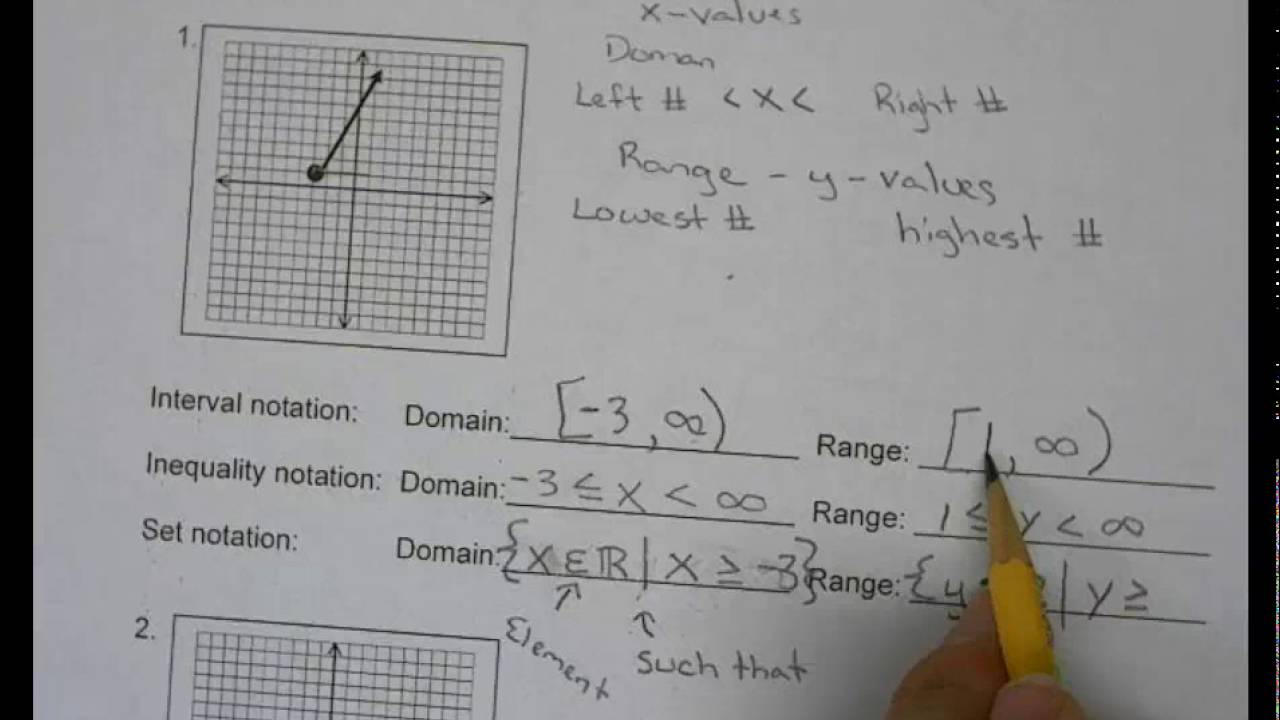 x-values
1.
Doman
Left # < x < Right #
Range - y-values
Lowest # highest #
Interval notation: Domain: [-3, ∞) Range: [1, ∞)
Inequality notation: Domain: -3 ≤ x < ∞ Range: 1 ≤ y < ∞
Set notation: Domain: {x ∈ ℝ | x ≥ -3} Range: {y | y ≥
2.
Element
such that